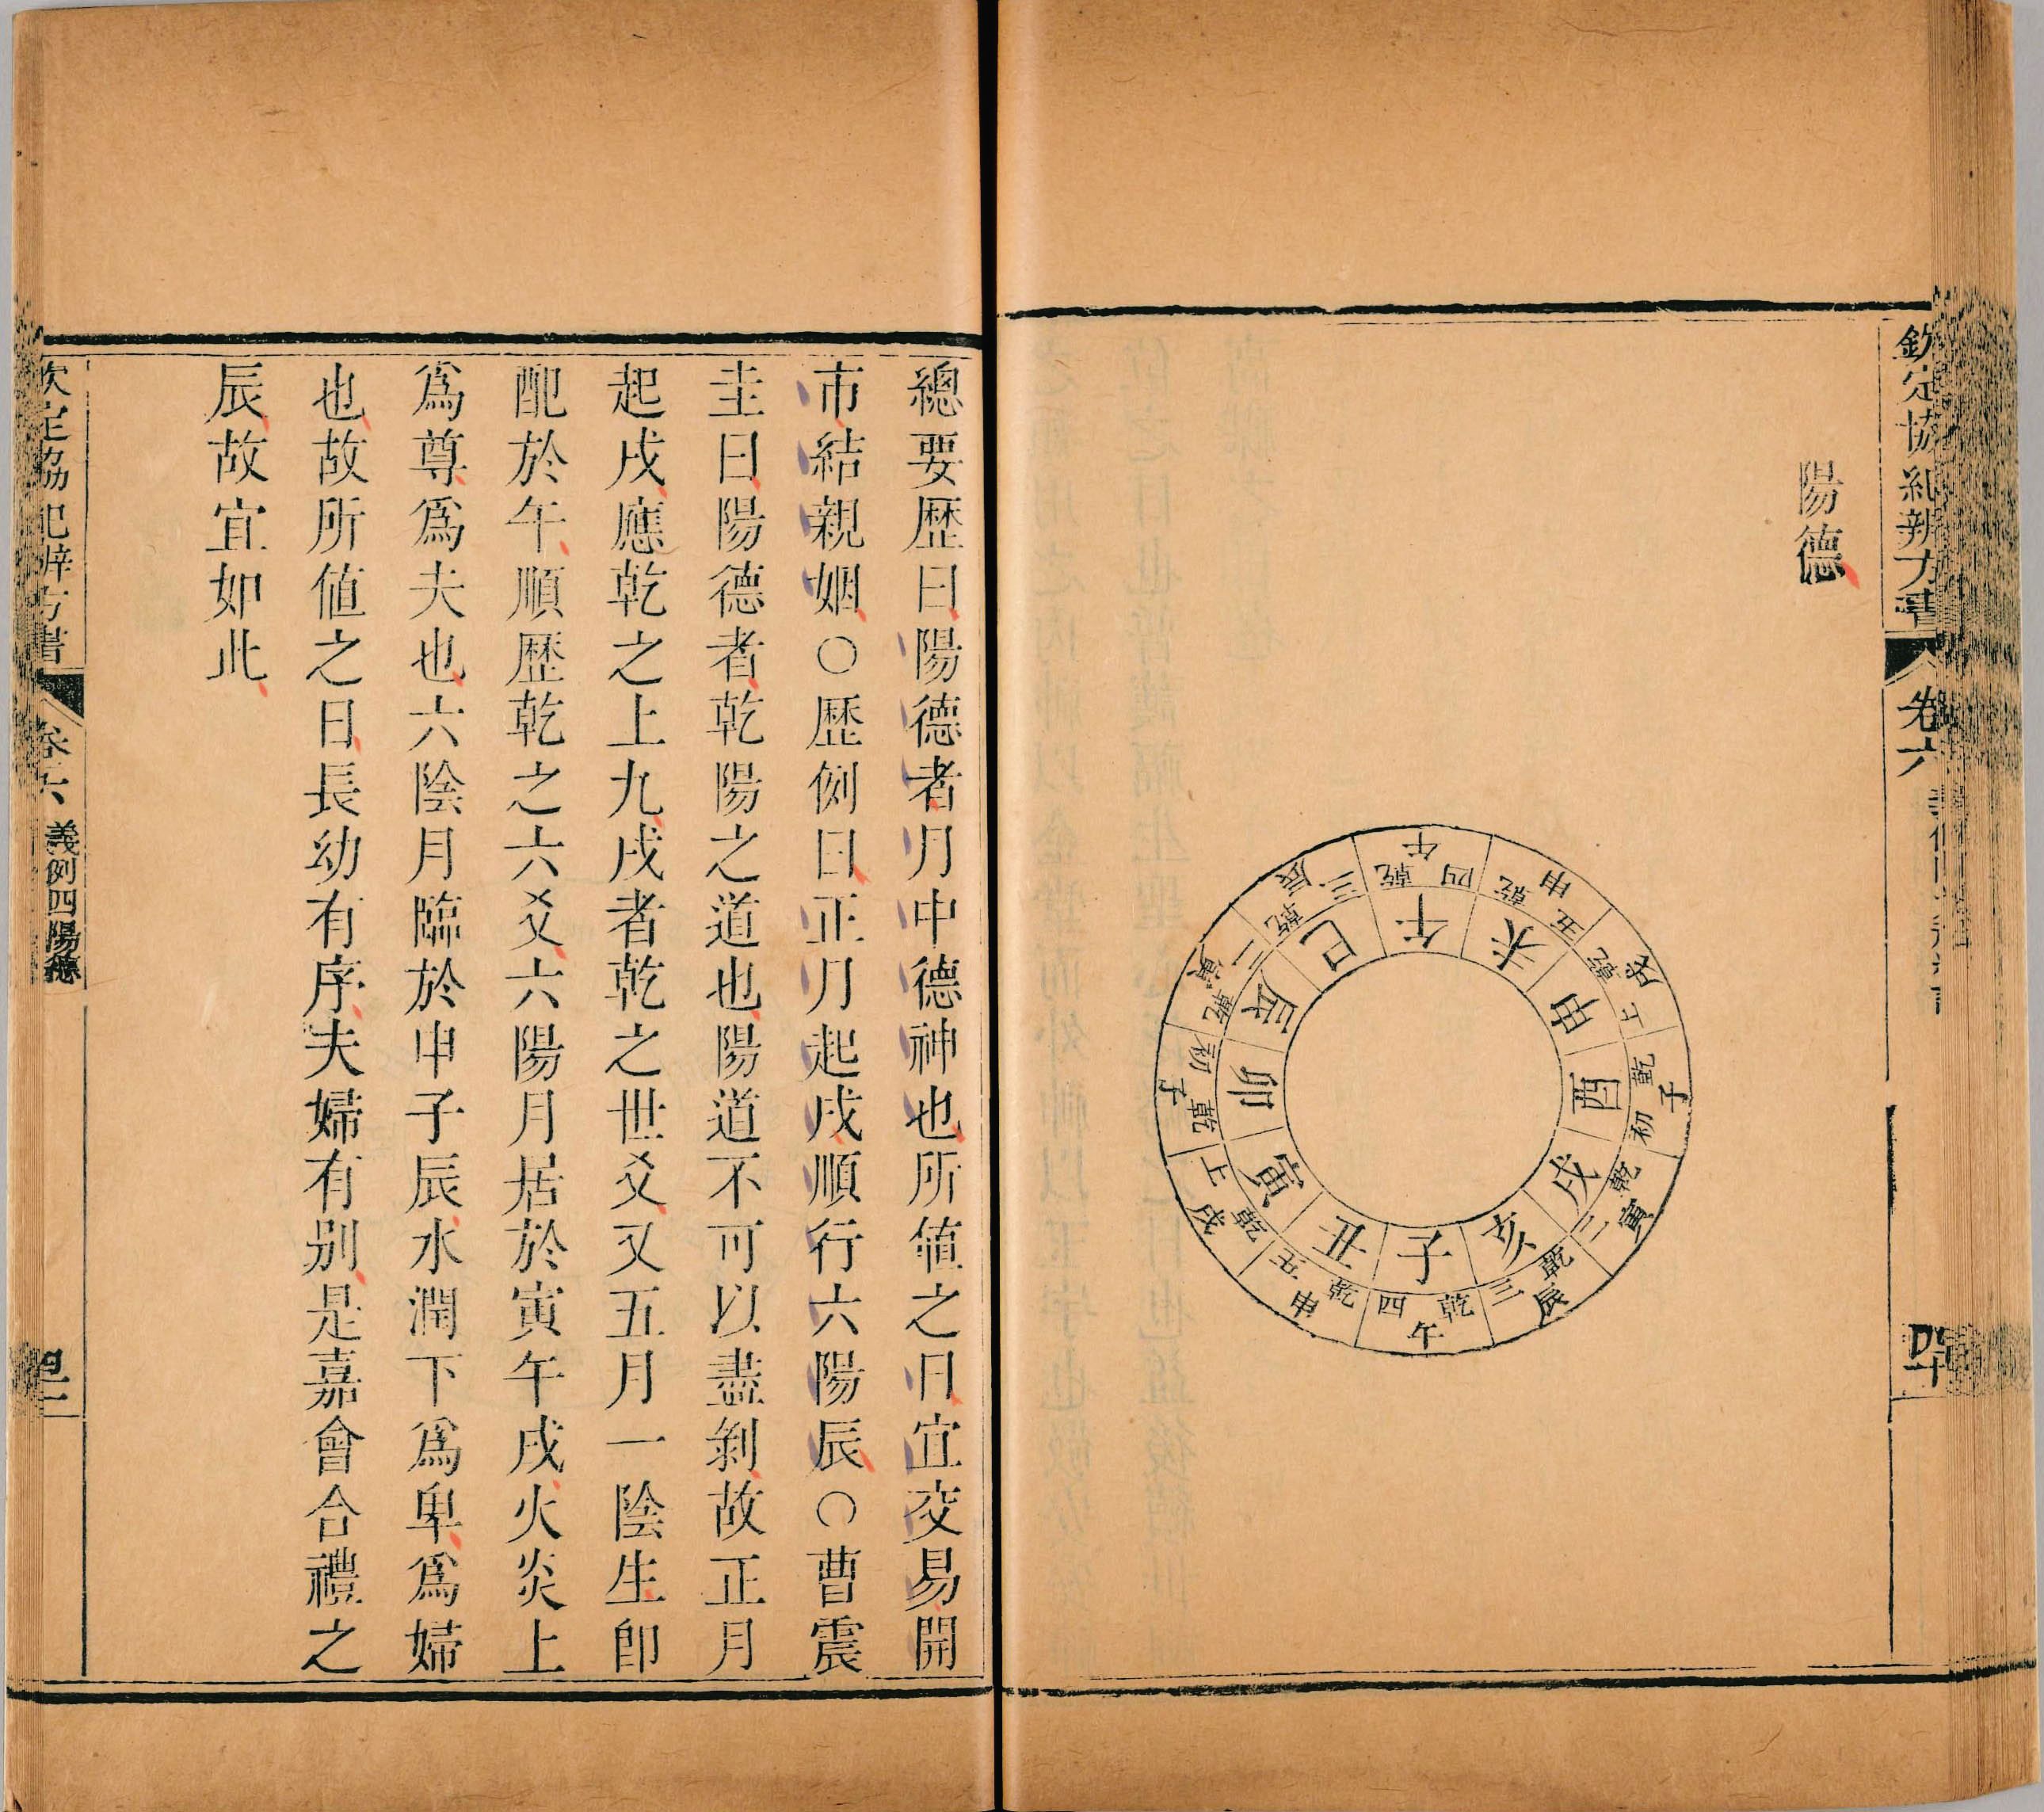 欽定協紀辨方書
卷六
四十
陽德
午 乾四
未 乾五 申
申 乾上 戌
酉 乾初 子
戌 乾二 寅
亥 乾三 辰
子 乾四 午
丑 乾五 申
寅 乾上 戌
卯 乾初 子
辰 乾二 寅
巳 乾三 辰
午
總要歷曰陽德者月中德神也所值之日宜交易開
市結親姻○歷例曰正月起戌順行六陽辰○曹震
圭曰陽德者乾陽之道也陽道不可以盡剝故正月
起戌應乾之上九戌者乾之世爻又五月一陰生卽
配於午順歷乾之六爻六陽月居於寅午戌火炎上
爲尊爲夫也六陰月臨於申子辰水潤下爲卑爲婦
也故所值之日長幼有序夫婦有别是嘉會合禮之
辰故宜如此
欽定協紀辨方書
卷六
義例四陽德